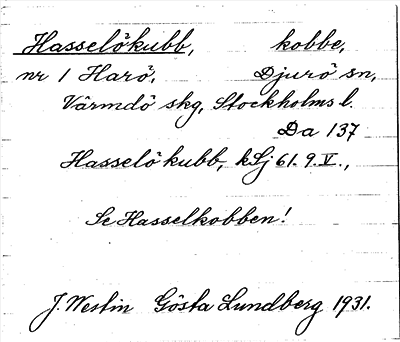 Hasselökubb, kobbe,
nr 1 Harö, Djurö sn,
Värmdö skg, Stockholms l.
Da 137
Hasselökubb, kSj 61. 9. V.,
Se Hasselkobben!
J. Westin Gösta Lundberg 1931.